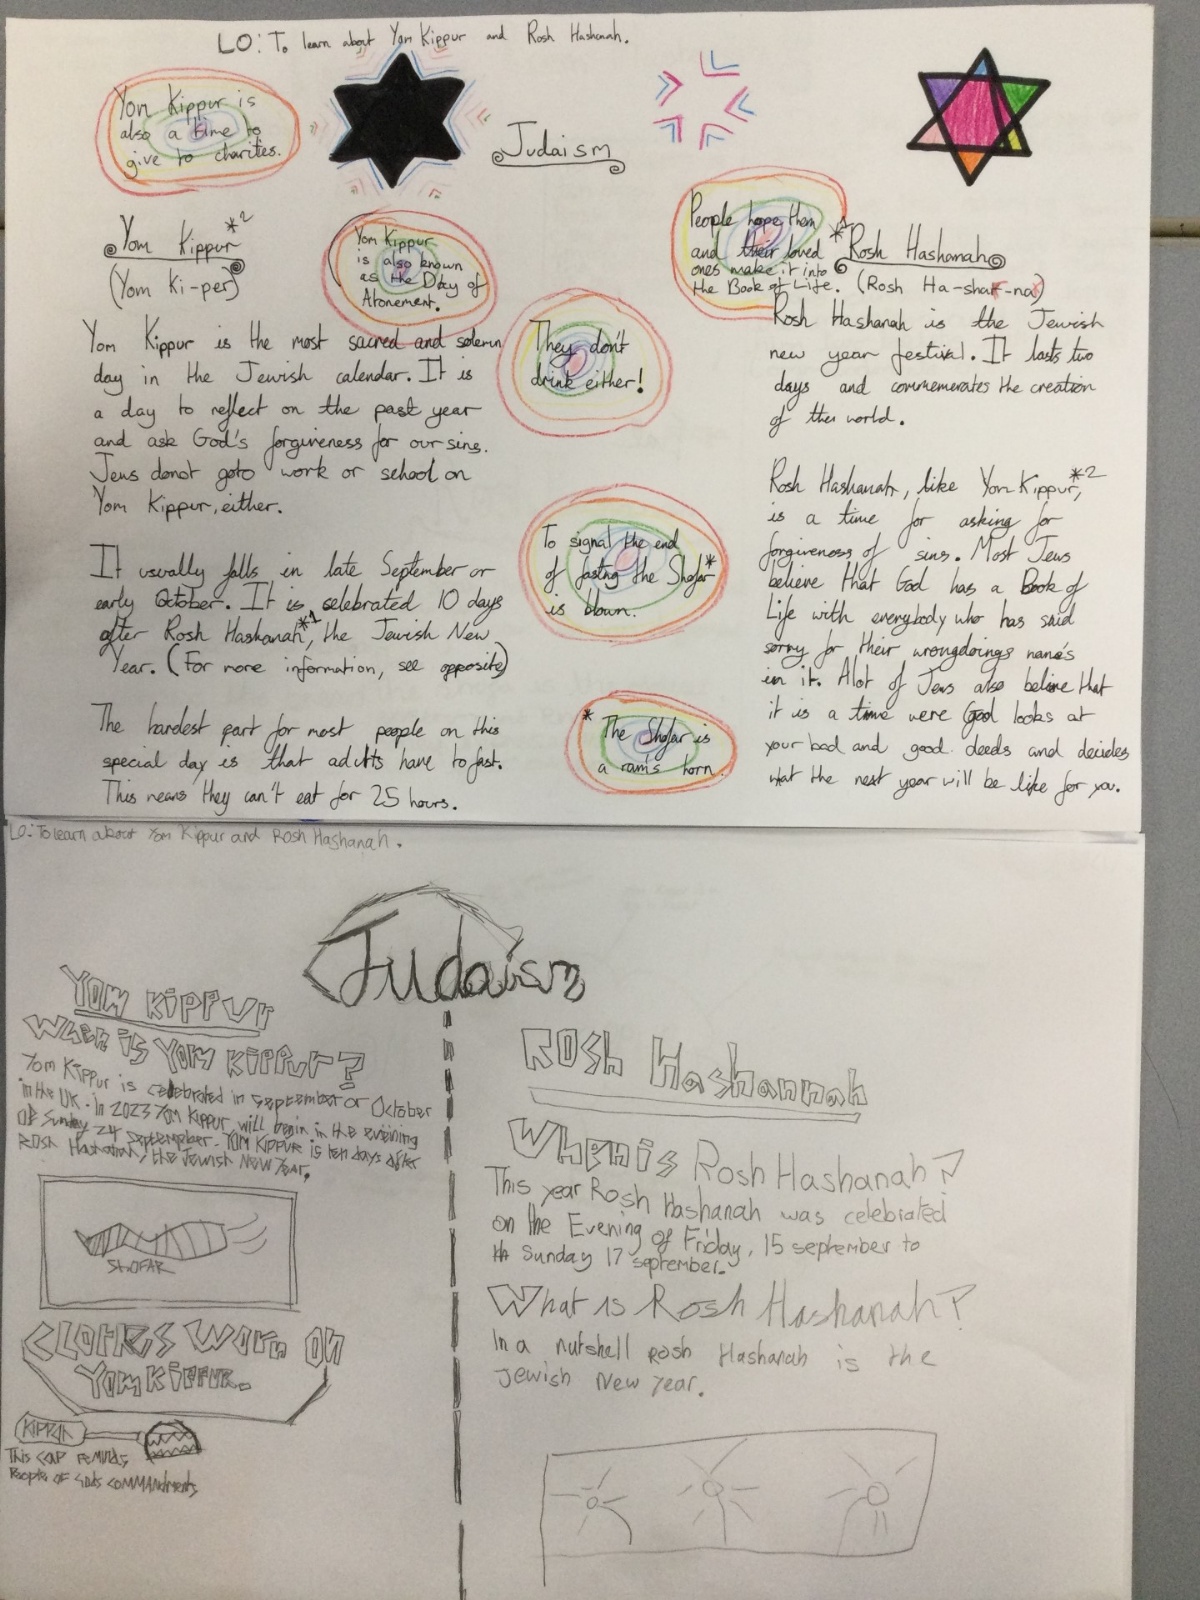 LO: To learn about Yom Kippur and Rosh Hashanah.
Judaism
Yom Kippur is
also a time to
give to charities.
Yom Kippur *2
(Yom Ki-per)
Yom Kippur
is also known
as the Day of
Atonement.
Yom Kippur is the most sacred and solemn
day in the Jewish calendar. It is
a day to reflect on the past year
and ask God's forgiveness for our sins.
Jews donot goto work or school on
Yom Kippur, either.
It usually falls in late September or
early October. It is celebrated 10 days
after Rosh Hashanah*1, the Jewish New
Year. (For more information, see opposite)
The hardest part for most people on this
special day is that adults have to fast.
This means they can't eat for 25 hours.
They don't
drink either!
To signal the end
of fasting the Shofar*
is blown.
* The Shofar is
a ram's horn.
People hope them
and their loved
ones make it into
the Book of Life.
*1 Rosh Hashanah
(Rosh Ha-shar-na)
Rosh Hashanah is the Jewish
new year festival. It lasts two
days and commemerates the creation
of the world.
Rosh Hashanah, like Yom Kippur*2,
is a time for asking for
forgiveness of sins. Most Jews
believe that God has a Book of
Life with everybody who has said
sorry for their wrongdoings name's
in it. Alot of Jews also believe that
it is a time were God looks at
your bad and good deeds and decides
what the next year will be like for you.
LO: To learn about Yom Kippur and Rosh Hashanah.
Judaism
Yom Kippur
When is Yom Kippur?
Yom Kippur is celebrated in September or October
in the UK. In 2023 Yom Kippur will begin in the evening
of Sunday 24 September. Yom Kippur is ten days after
Rosh Hashanah, the Jewish New Year.
SHOFAR
Clothes Worn on
Yom Kippur.
KIPPAH
This cap reminds
People of Gods commandments
Rosh Hashannah
When is Rosh Hashanah?
This year Rosh Hashanah was celebrated
on the Evening of Friday, 15 september to
Sunday 17 september.
What is Rosh Hashanah?
In a nutshell Rosh Hashanah is the
Jewish New Year.